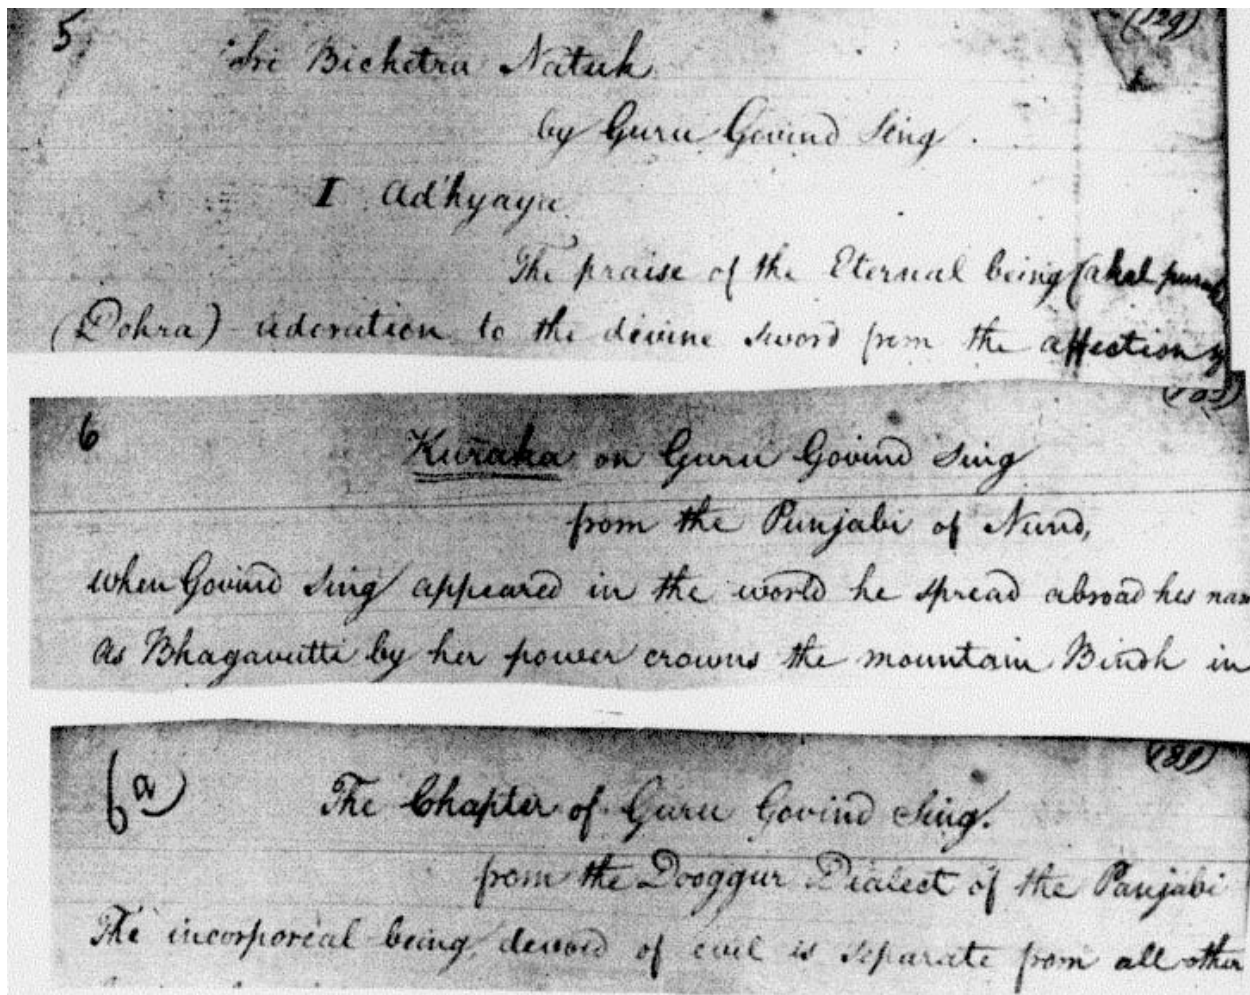 5 (129)
Sri Bichetra Natuk
by Guru Govind Sing.
I Ad'hyaya
The praise of the Eternal being (akal purus)
(Dohra) adoration to the divine sword from the affection of
6
Kuraka on Guru Govind Sing
from the Punjabi of Nund,
when Govind Sing appeared in the world he spread abroad hes nam
As Bhagavutti by her power crowns the mountain Bindh in
6a) (181)
The Chapter of Guru Govind Sing.
from the Dooggur Dialect of the Panjabi
The incorporeal being, devoid of evil is separate from all other